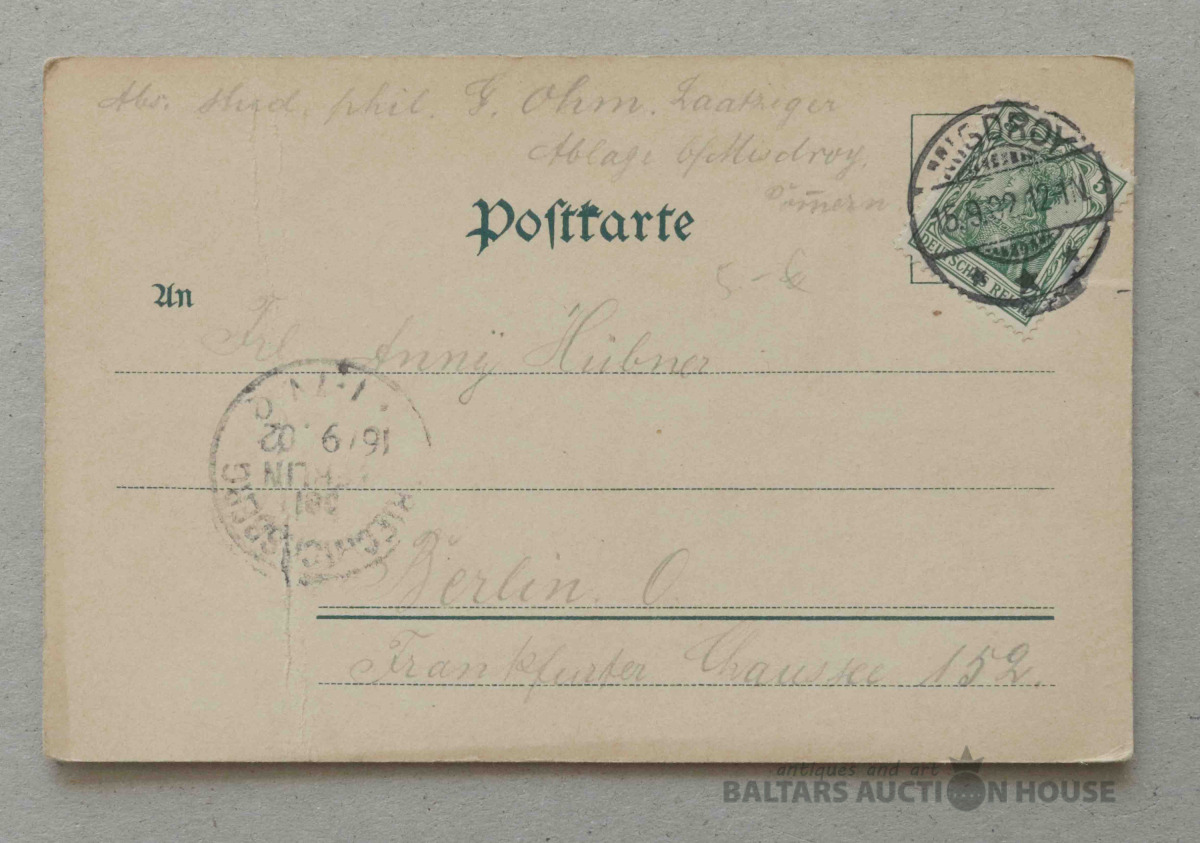 Abs. stud. phil. G. Ohm. Laatziger
Ablage b/Misdroy.
Pom̅ern
Postkarte
MISDROY
15.9.02.12-1N.
DEUTSCHES REICH
5
5 -
An
Frl Anny Hübner
16/9 .02
BERLIN
Berlin. O.
Frankfurter Chaussee 152.
antiques and art
BALTARS AUCTION HOUSE